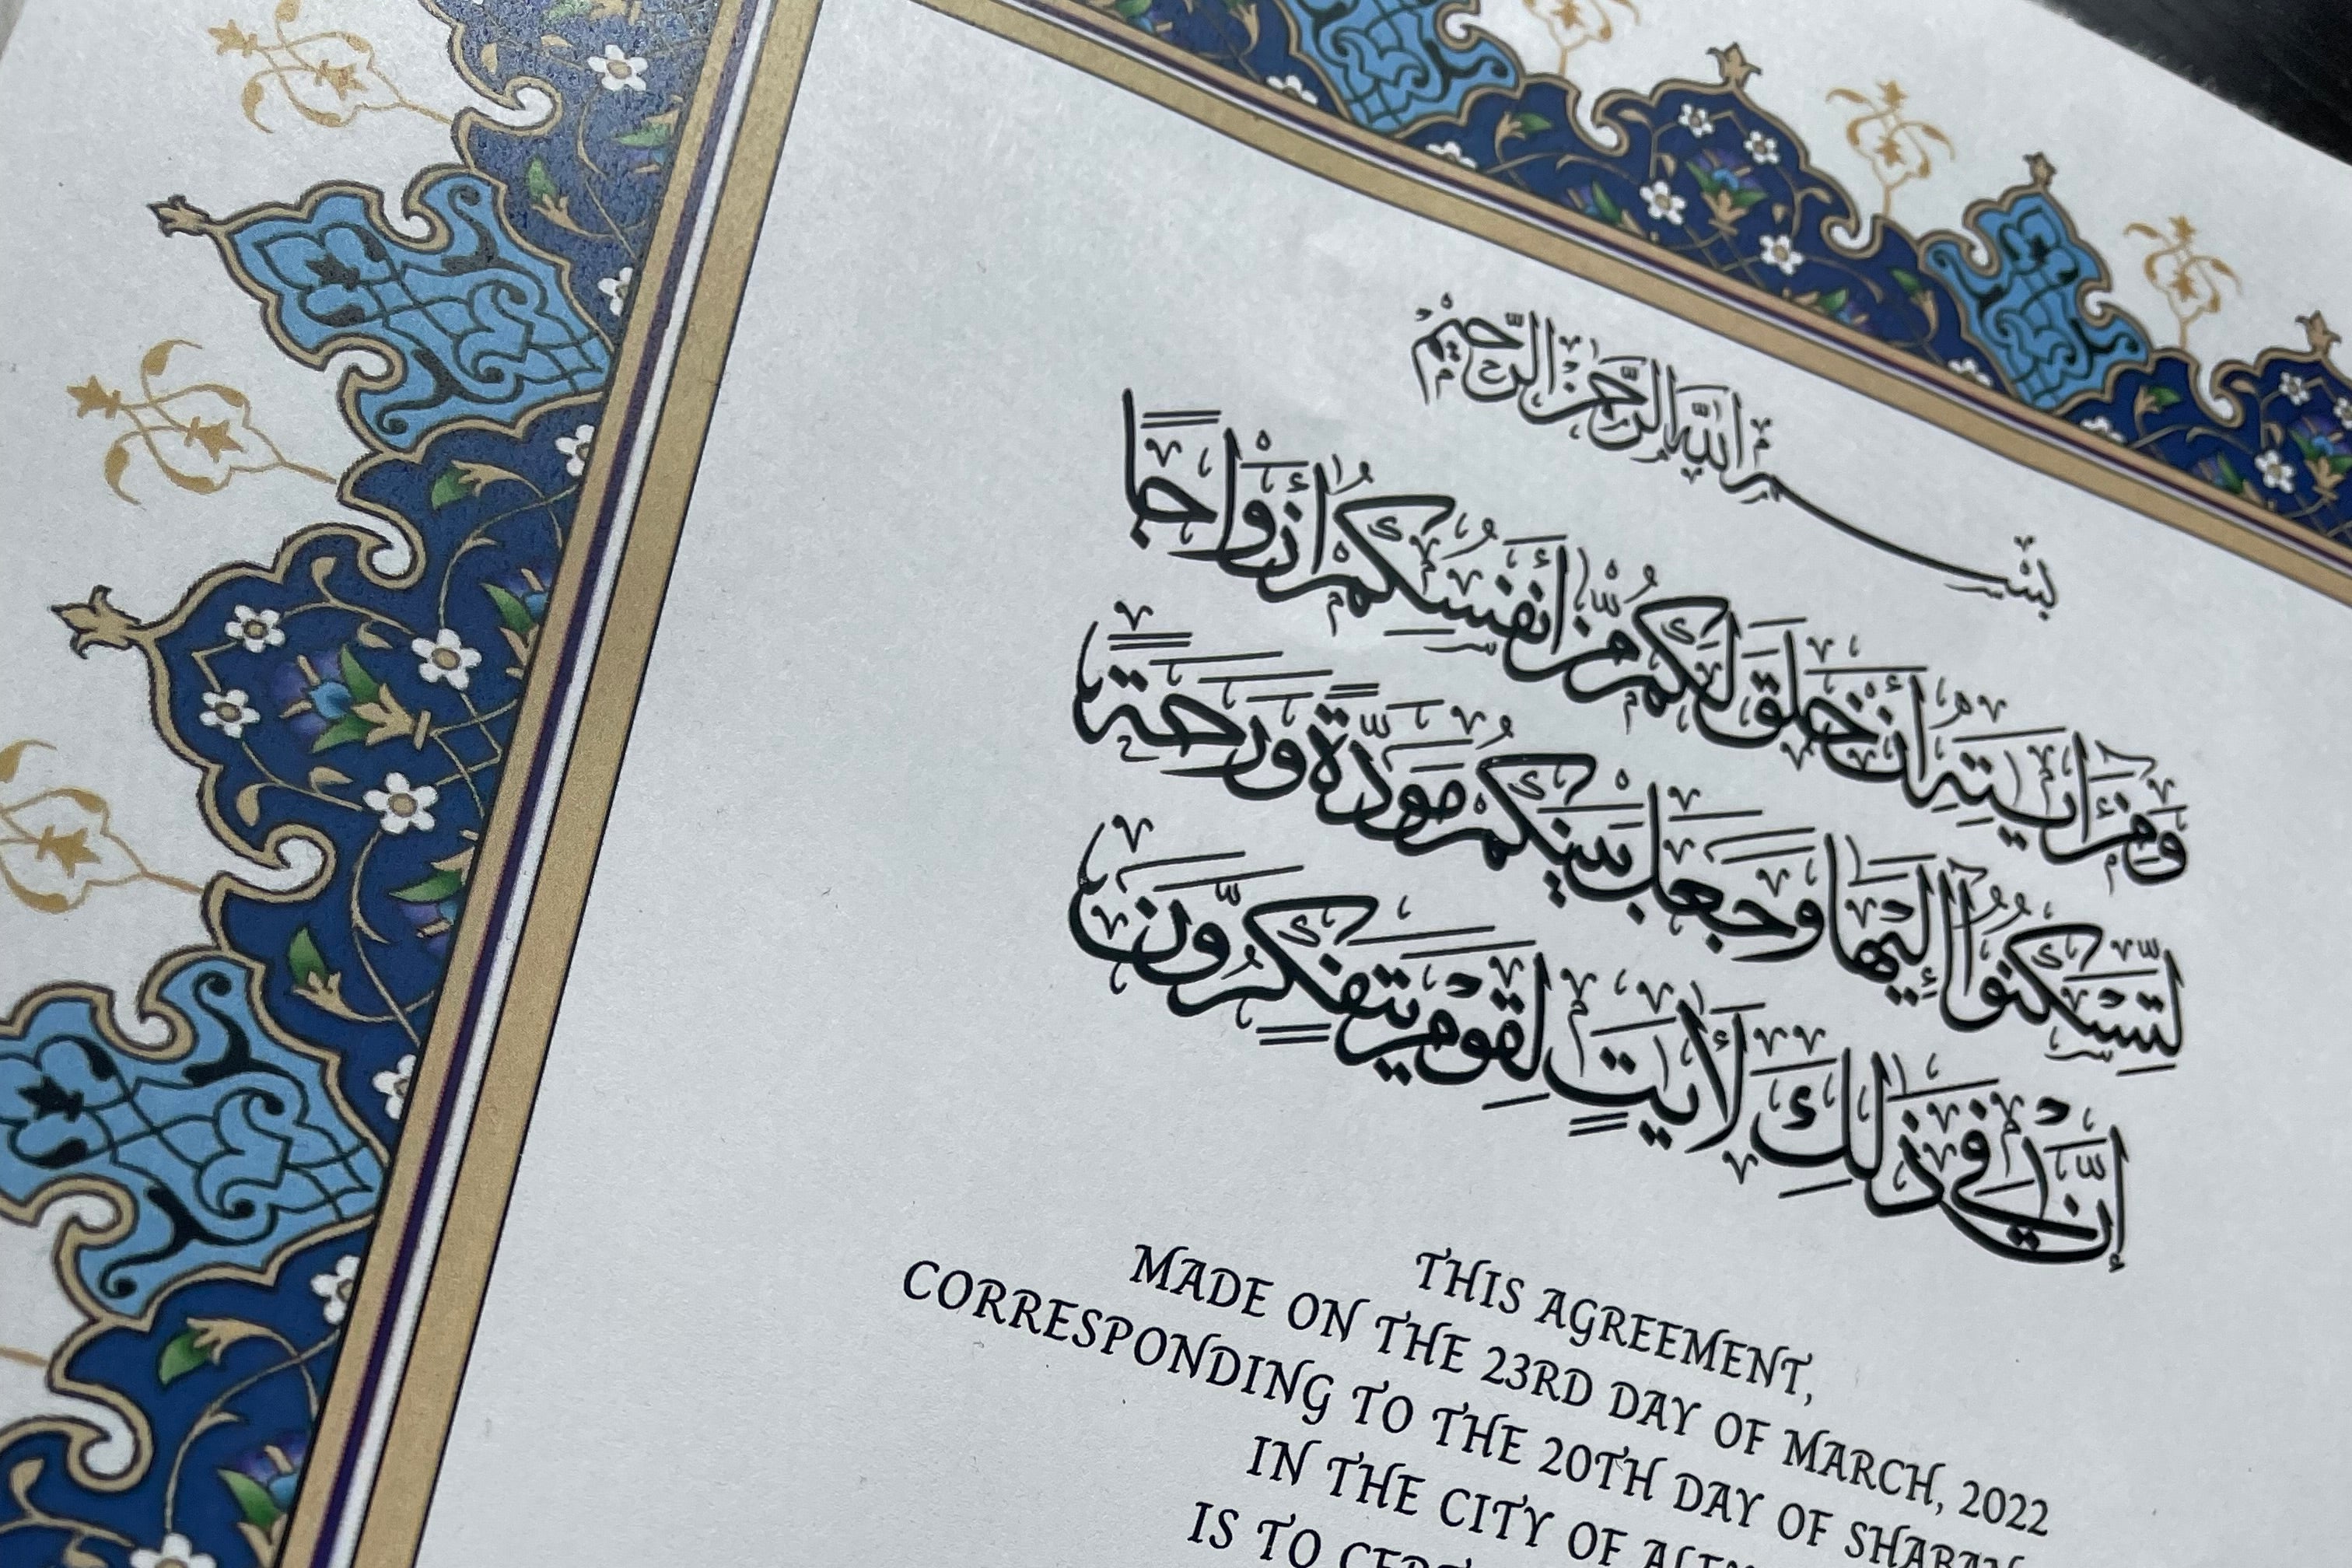 بِسْمِ اللَّهِ الرَّحْمَٰنِ الرَّحِيمِ
وَمِنْ آيَاتِهِ أَنْ خَلَقَ لَكُم مِّنْ أَنفُسِكُمْ أَزْوَاجًا
لِّتَسْكُنُوا إِلَيْهَا وَجَعَلَ بَيْنَكُم مَّوَدَّةً وَرَحْمَةً
إِنَّ فِي ذَٰلِكَ لَآيَاتٍ لِّقَوْمٍ يَتَفَكَّرُونَ
THIS AGREEMENT,
MADE ON THE 23RD DAY OF MARCH, 2022
CORRESPONDING TO THE 20TH DAY OF
IN THE CITY OF
IS TO